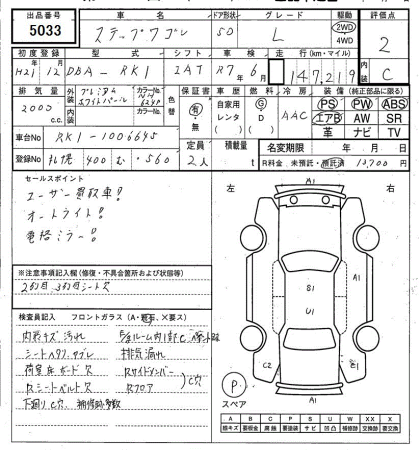 出品番号 車名 ドア形状 グレード 駆動 評価点
5033 ステップワゴン 5D L 2WD 4WD 2
初度登録 型式 シフト 車検 走行(km・マイル) 内装
H21 12 DBA-RK1 IAT R7年6月 147,219 C
排気量 外装色 カラーNo. 色替 保証書 車歴 燃料 冷房 装備(純正部品に限る)
2000 c.c. ホワイトパール 有・無 自家用 レンタ ( ) G D ( ) AAC PS PW ABS
エアB AW SR
革 ナビ TV
車台No RK1-1006645
定員 積載量 名変期限 年 月 日
登録No 札幌 400 む ・560 2人 t R料金 未預託・預託済 10,700 円
セールスポイント
ユーザー買取車!
オートライト!
電格ミラー!
左 右
A1
A1
A1
S1
U1
C2
A1
P
スペア
※注意事項記入欄(修復・不具合箇所および状態等)
2列目 3列目シート欠
検査員記入 フロントガラス(A・飛石、×要ス)
内装キズ汚れ
シートヘタリ、ヤブレ 排気漏れ
荷室ボード欠 Rサイドメンバー
Rシートベルト欠 Rフロア C穴
下廻りC穴、補修跡多数
A B C P S U W X XX X
線キズ 要板金 腐蝕 要塗装 サビ 凹凸 補修跡 交換跡 要交換